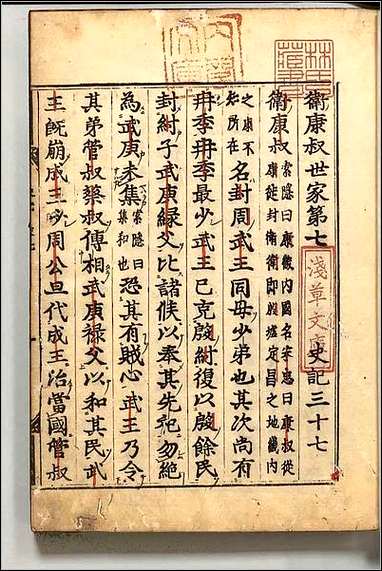 林氏藏書
衛康叔世家第七 史記三十七
淺草文庫
衛康叔
索隱曰康畿內國名宋忠曰康叔從
康徙封衛衛即殷墟定昌之地畿內
之康不
知所在
名封周武王同母少弟也其次尚有
冉季冉季最少武王已克殷紂復以殷餘民
封紂子武庚祿父比諸侯以奉其先祀勿絶
為武庚未集
索隱曰
集和也
恐其有賊心武王乃令
其弟管叔蔡叔傅相武庚祿父以和其民武
王既崩成王少周公旦代成王治當國管叔